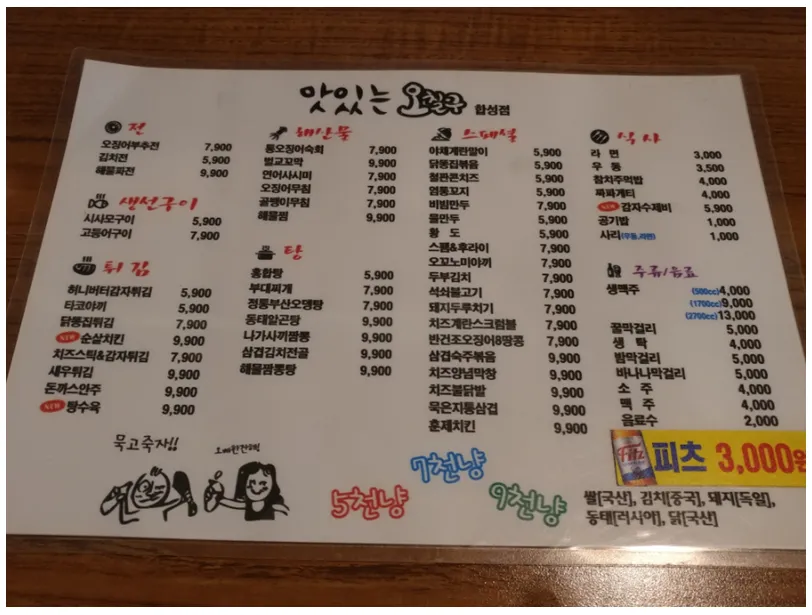 맛있는 오친구 합성점
전
오징어부추전 7,900
김치전 5,900
해물파전 9,900
생선구이
시사모구이 5,900
고등어구이 7,900
튀김
허니버터감자튀김 5,900
타코야끼 5,900
닭똥집튀김 7,900
NEW 순살치킨 9,900
치즈스틱&감자튀김 7,900
새우튀김 9,900
돈까스안주 9,900
NEW 탕수육 9,900
해산물
통오징어숙회 7,900
벌교꼬막 9,900
연어사시미 7,900
오징어무침 7,900
골뱅이무침 7,900
해물찜 9,900
탕
홍합탕 5,900
부대찌개 7,900
정통부산오뎅탕 7,900
동태알곤탕 9,900
나가사끼짬뽕 9,900
삼겹김치전골 9,900
해물짬뽕탕 9,900
스페셜
야채계란말이 5,900
닭똥집볶음 5,900
철판콘치즈 5,900
염통꼬지 5,900
비빔만두 7,900
물만두 5,900
황 도 5,900
스팸&후라이 7,900
오꼬노미야끼 7,900
두부김치 7,900
석쇠불고기 7,900
돼지두루치기 7,900
치즈계란스크럼블 7,900
반건조오징어&땅콩 7,900
삼겹숙주볶음 9,900
치즈양념막창 9,900
치즈불닭발 9,900
묵은지통삼겹 9,900
훈제치킨 9,900
식사
라 면 3,000
우 동 3,500
참치주먹밥 4,000
짜파게티 4,000
NEW 감자수제비 5,900
공기밥 1,000
사리(우동,라면) 1,000
주류/음료
생맥주 (500cc)4,000
(1700cc)9,000
(2700cc)13,000
꿀막걸리 5,000
생 탁 4,000
밤막걸리 5,000
바나나막걸리 5,000
소 주 4,000
맥 주 4,000
음료수 2,000
Fitz 피츠 3,000원
묵고죽재!!
5천냥
7천냥
9천냥
쌀[국산], 김치[중국], 돼지[독일],
동태[러시아], 닭[국산]